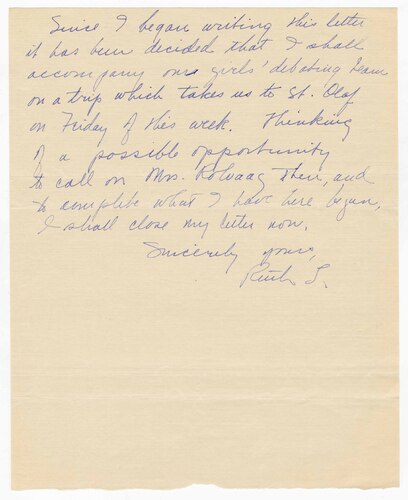 Since I began writing this letter
it has been decided that I shall
accompany our girls' debating team
on a trip which takes us to St. Olaf
on Friday of this week. Thinking
of a possible opportunity
to call on Mrs. Rolvaag then, and
to complete what I have here begun,
I shall close my letter now.
Sincerely yours,
Ruth L.